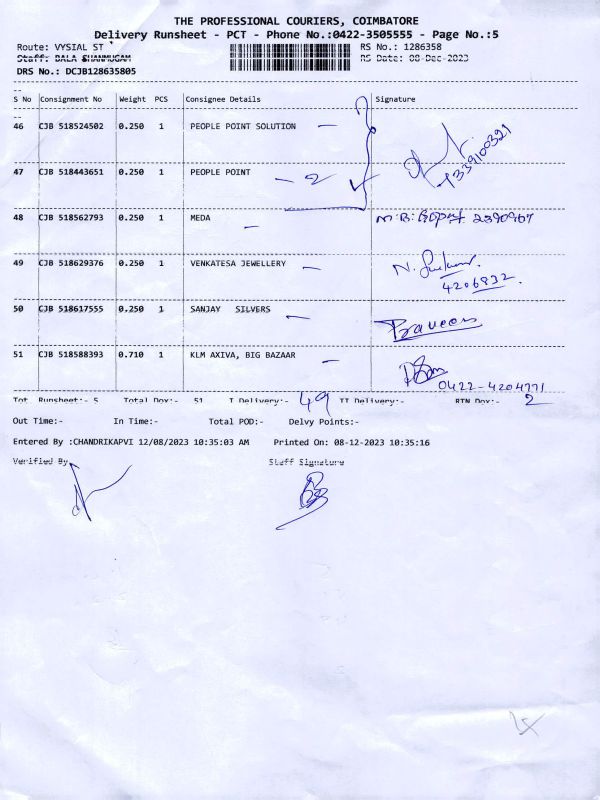 THE PROFESSIONAL COURIERS, COIMBATORE
Delivery Runsheet - PCT - Phone No.:0422-3505555 - Page No.:5
Route: VYSIAL ST RS No.: 1286358
Staff: BALA SHANMUGAM RS Date: 08-Dec-2023
DRS No.: DCJB128635805
S No Consignment No Weight PCS Consignee Details Signature
46 CJB 518524502 0.250 1 PEOPLE POINT SOLUTION
47 CJB 518443651 0.250 1 PEOPLE POINT - 2
48 CJB 518562793 0.250 1 MEDA
49 CJB 518629376 0.250 1 VENKATESA JEWELLERY
4206932
50 CJB 518617555 0.250 1 SANJAY SILVERS Praveen
51 CJB 518588393 0.710 1 KLM AXIVA, BIG BAZAAR
0422-4204771
Tot Runsheet:- 5 Total Dox:- 51 I Delivery:- 49 II Delivery:- RTN Dox:- 2
Out Time:- In Time:- Total POD:- Delvy Points:-
Entered By :CHANDRIKAPVI 12/08/2023 10:35:03 AM Printed On: 08-12-2023 10:35:16
Verified By Staff Signature